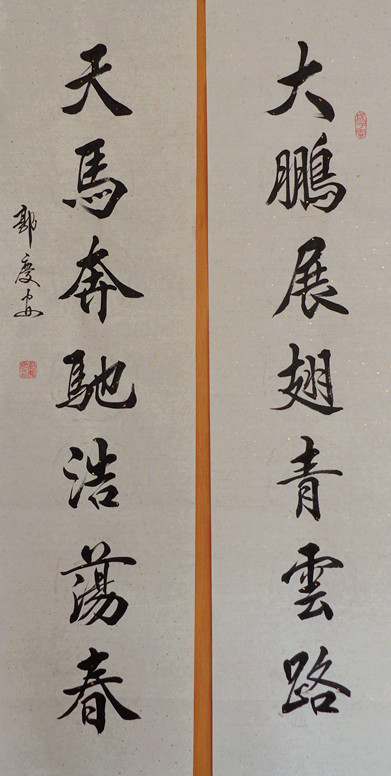 大鵬展翅青雲路
天馬奔馳浩蕩春
郭慶安